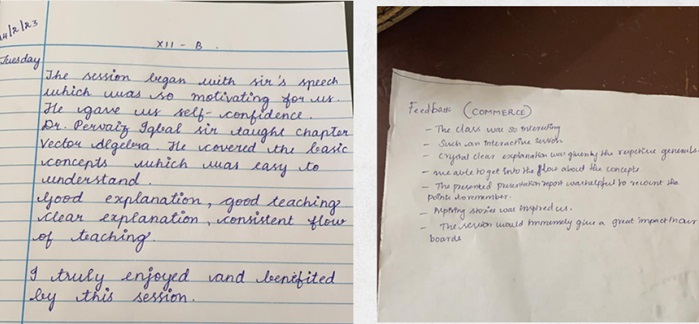 14/2/23
Tuesday
XII - B
The session began with sir's speech
which was so motivating for us.
He gave us self-confidence.
Dr. Pervaiz Iqbal sir taught chapter
Vector Algebra. He covered the basic
concepts which was easy to
understand.
Good explanation, good teaching
clear explanation, consistent flow
of teaching.
I truly enjoyed and benifited
by this session.
Feedback (COMMERCE)
- The class was so interesting
- Such an interactive session
- Crystal clear explanation was given by the respective
- we able to get into the flow about the concepts
- The presented presentation was helpful to recount the
points to remember.
- stories was inspired us.
- The session would immensely give a great impact in our
boards